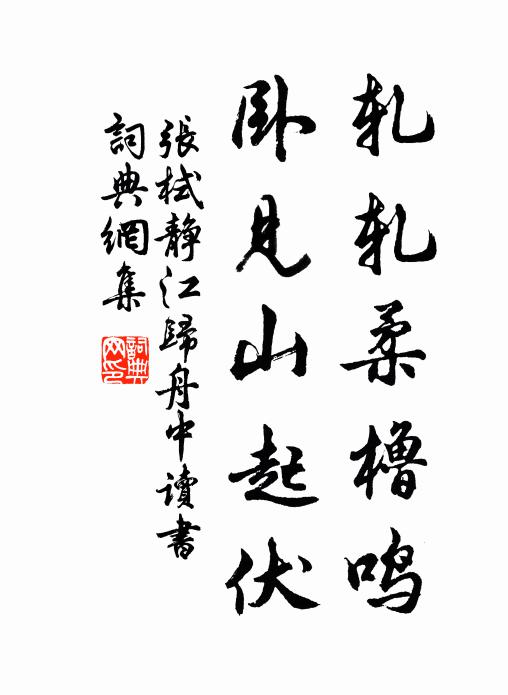 軋軋柔櫓鳴
臥見山起伏
張栻靜江歸舟中讀書
詞典網集
詞典网印